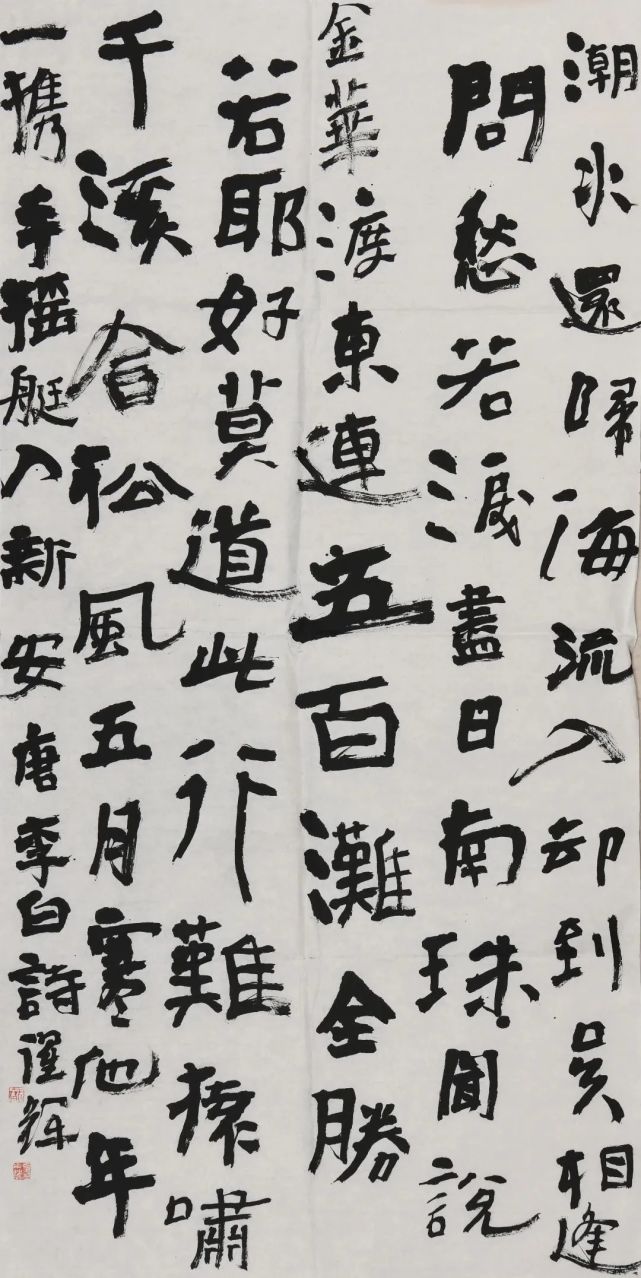 潮水還歸海流人却到吳相逢
問愁苦淚盡日南珠聞說
金華渡東連五百灘全勝
若耶好莫道此行難猿嘯
千溪合松風五月寒他年
一携手摇艇入新安唐李白詩